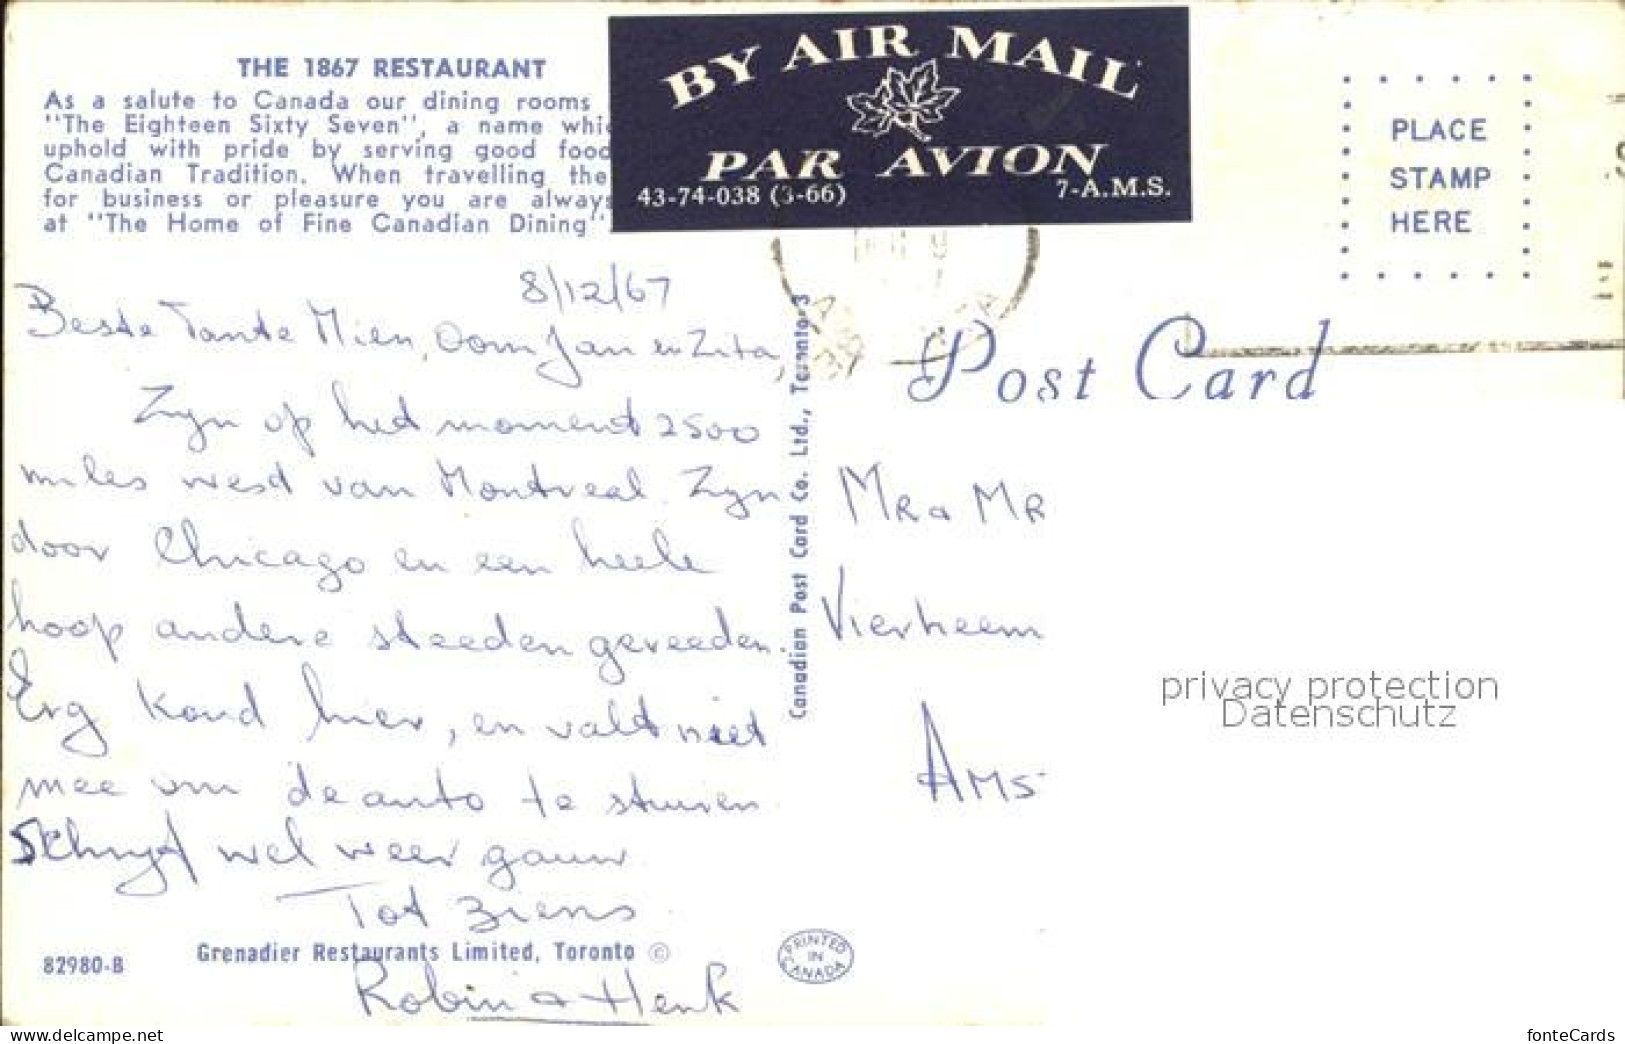 THE 1867 RESTAURANT
As a salute to Canada our dining rooms
"The Eighteen Sixty Seven", a name whi
uphold with pride by serving good food
Canadian Tradition. When travelling the
for business or pleasure you are always
at "The Home of Fine Canadian Dining"
BY AIR MAIL
PAR AVION
43-74-038 (3-66) 7-A.M.S.
PLACE
STAMP
HERE
8/12/67
Beste Tante Mien, Oom Jan en Zita
Zijn op het moment 2500
miles west van Montreal. Zijn
door Chicago en een heele
hoop andere steeden gereeden.
Erg koud hier, en valt niet
mee om de auto te sturen.
Schrijf wel weer gauw
Tot ziens
Robin & Henk
Grenadier Restaurants Limited, Toronto ©
82980-B
PRINTED IN CANADA
Canadian Post Card Co. Ltd., Toronto 3
Post Card
MR & MR
Vierheem
AMS
privacy protection
Datenschutz
https://www.delcampe.net
fonteCards